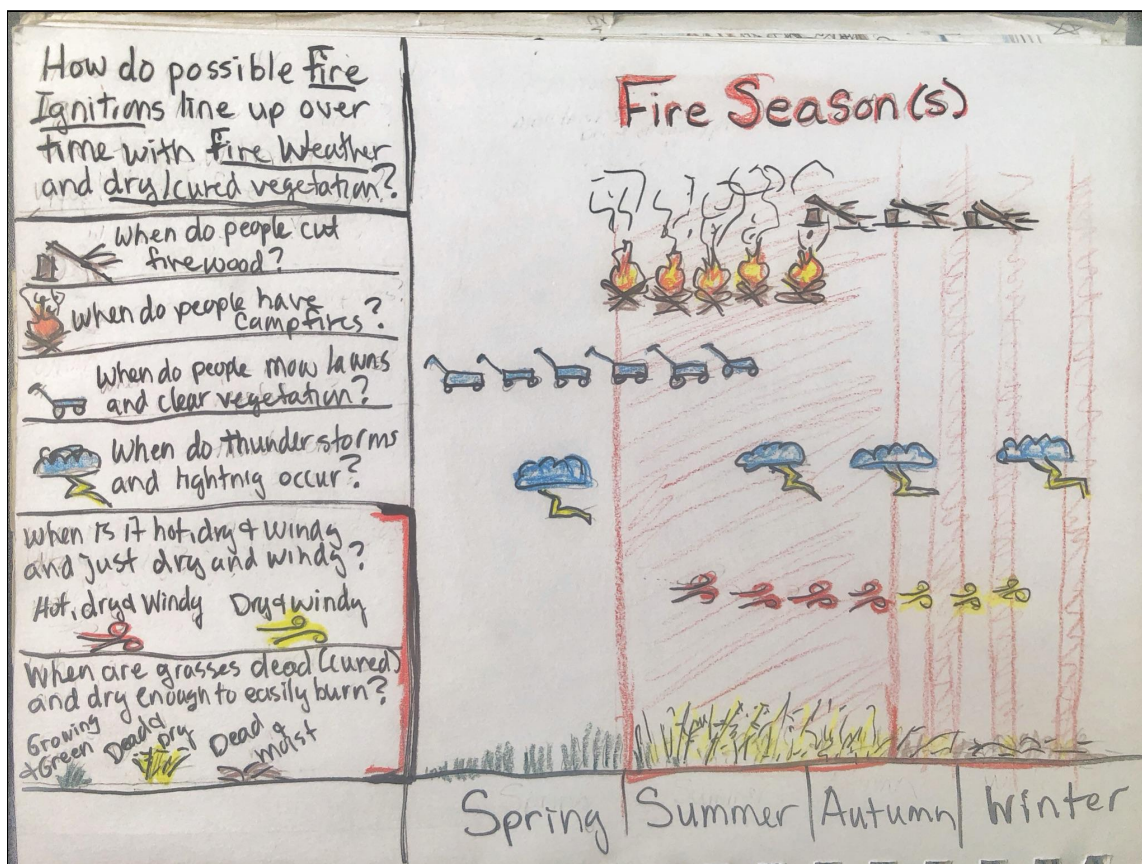 How do possible Fire
Ignitions line up over
time with Fire Weather
and dry/cured vegetation?
When do people cut
firewood?
When do people have
Campfires?
When do people mow lawns
and clear vegetation?
When do thunderstorms
and lightnig occur?
When is it hot, dry & windy
and just dry and windy?
Hot, dry & Windy Dry & windy
When are grasses dead (cured)
and dry enough to easily burn?
Growing
& Green
Dead &
Dry
Dead &
moist
Fire Season(s)
Spring Summer Autumn Winter